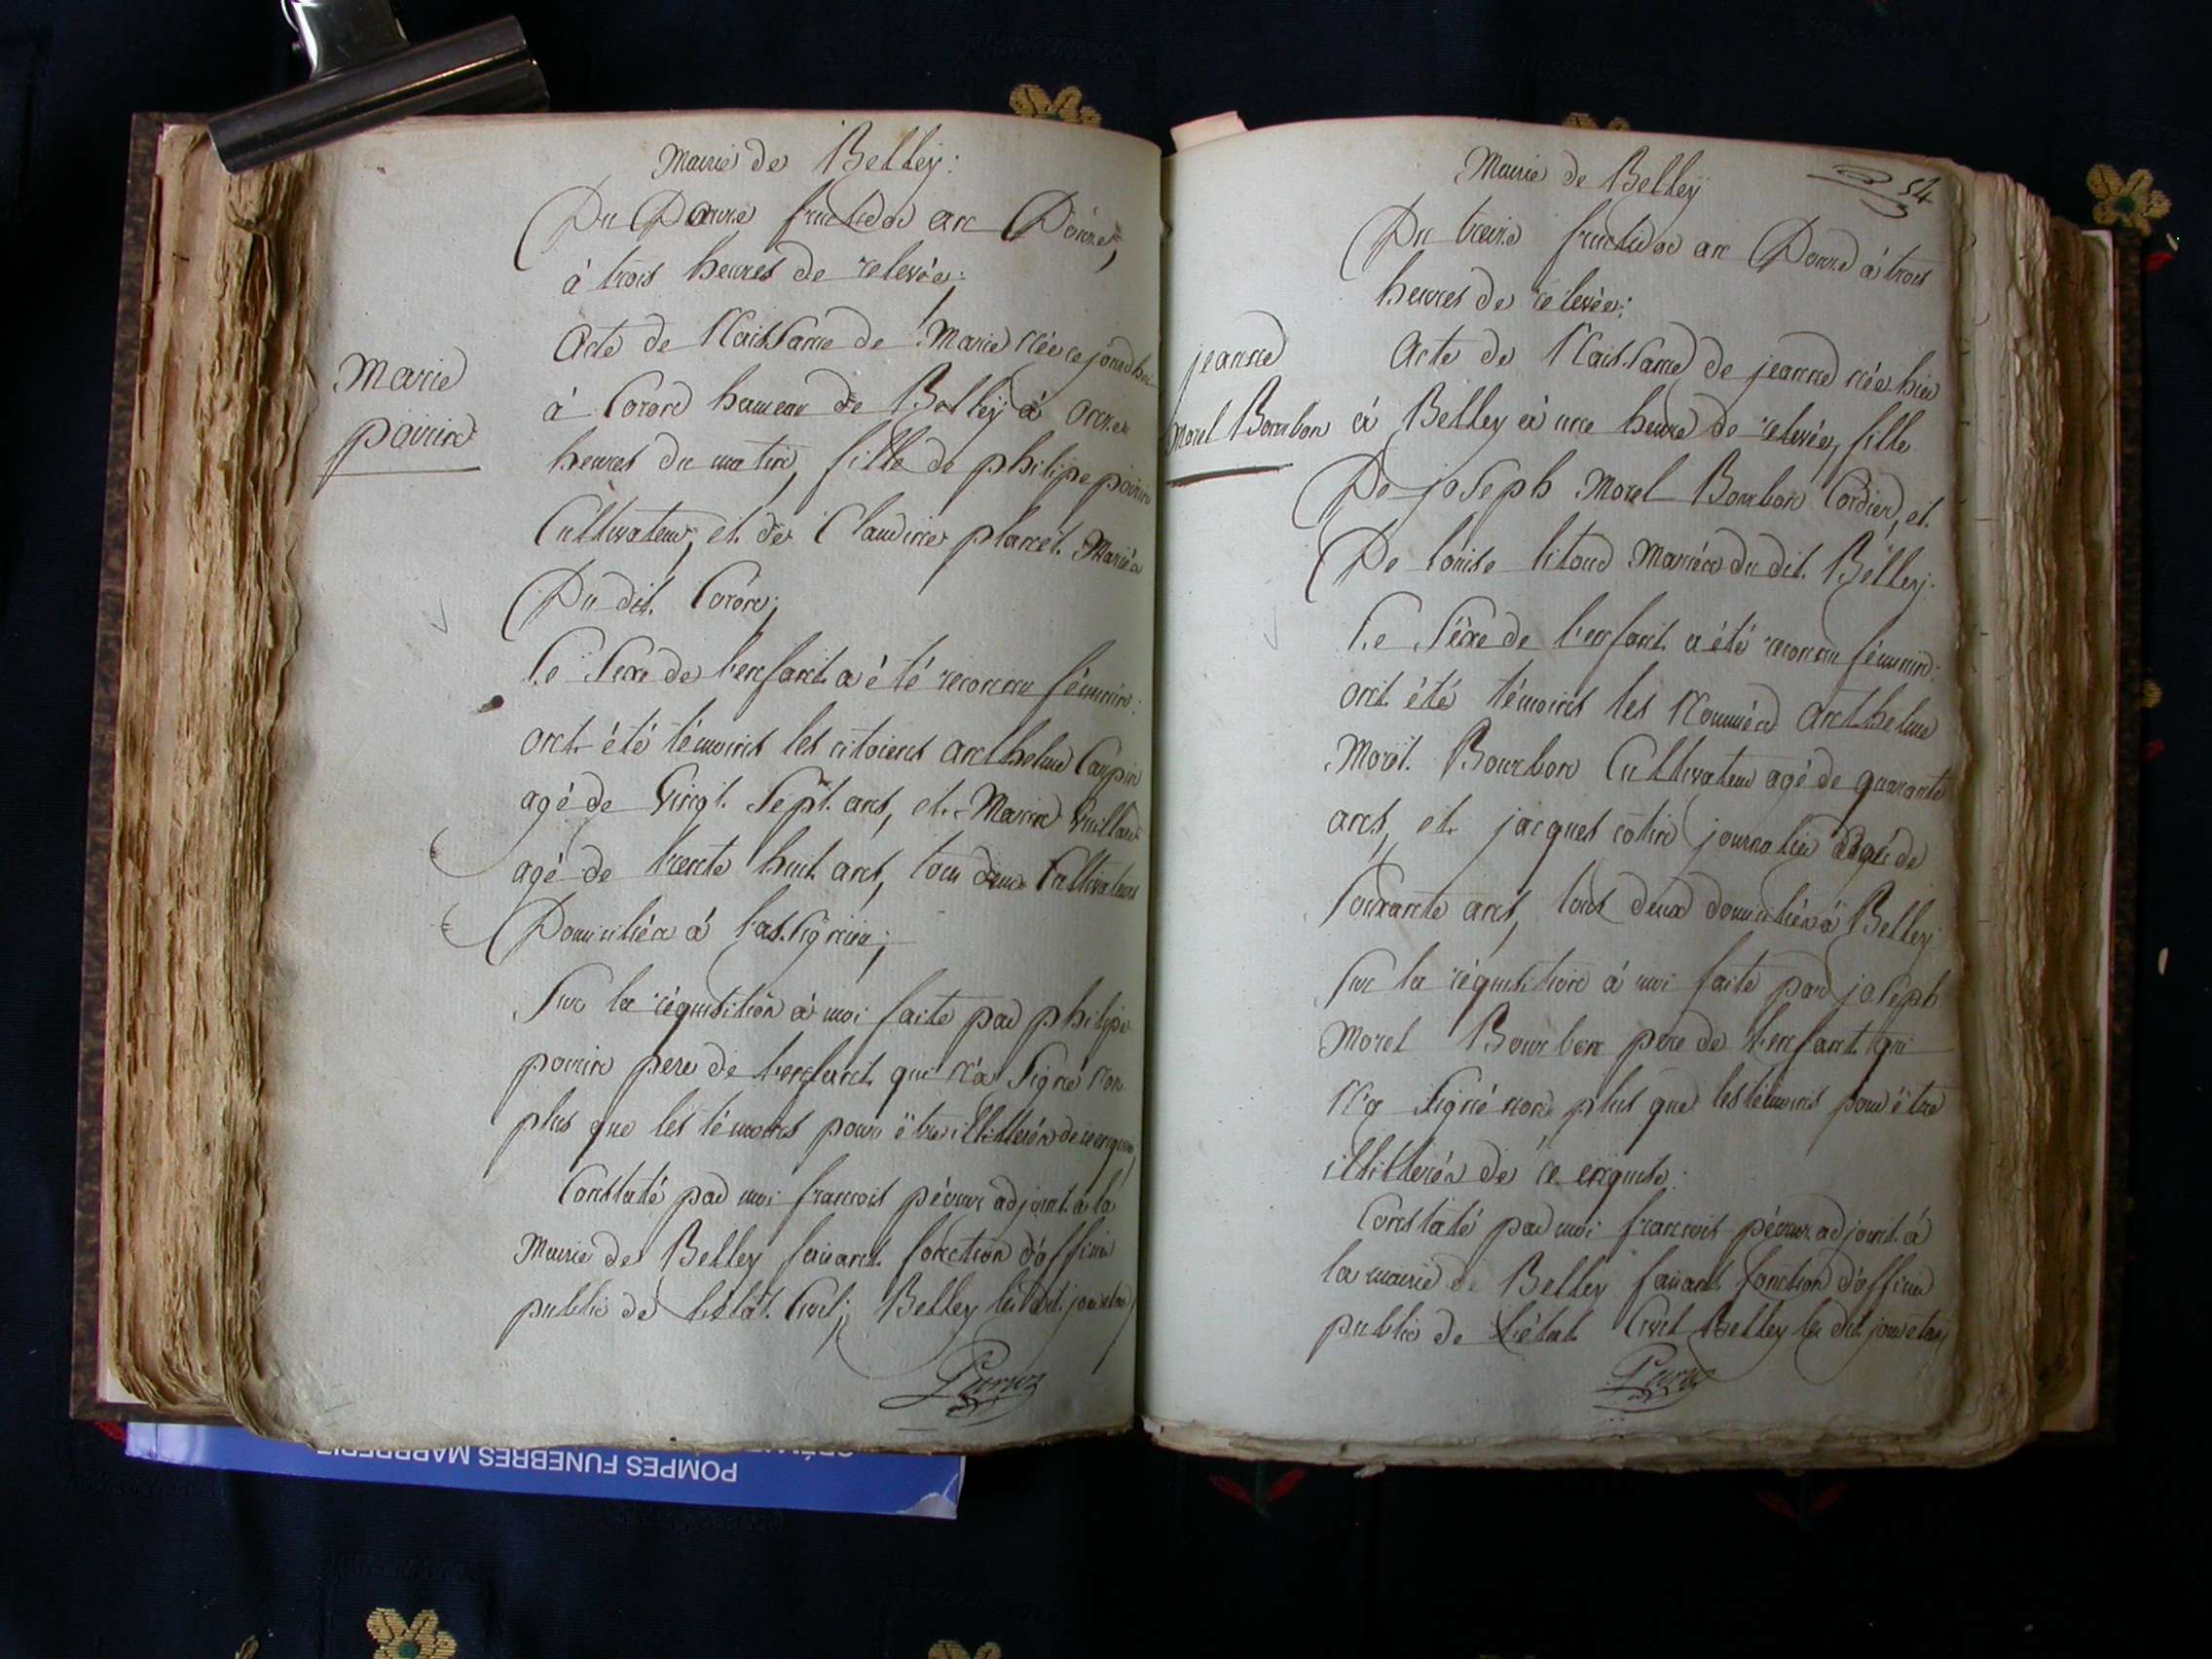 Mairie de Belley:
Du Douze fructidor an Douze,
à trois heures de relevée:
Acte de Naissance de Marie née ce jourdhui
à Coron hameau de Belley à onze
heures du matin, fille de philipe poirin
Cultivateur, et de Claudine plancet Mariés
Du dit Coron;
Le Sexe de l'enfant a été reconnu féminin:
ont été témoins les citoiens anthelme Carpin
agé de Vingt Sept ans, et Marin Vuillaud
agé de trente huit ans, tous deux Cultivateurs
Domiciliés à
Sur la réquisition à moi faite par philipe
poirin pere de l'enfant qui n'a Signé non
plus que les témoins pour être illitterés de ce enquis,
Constaté par moi francois adjoint à la
Mairie de Belley faisant fonction d'officier
public de l'état Civil; Belley les dit jour et an,
Marie
poirin
Mairie de Belley
54
Du treize fructidor an Douze à trois
heures de relevée;
Acte de Naissance de jeanne née hier
à Belley à une heure de relevée, fille
De joseph Morel Bourbon Cordier, et
De Louise Mariés du dit Belley.
Le Sexe de l'enfant a été reconnu féminin:
ont été témoins les Nommés anthelme
Morel Bourbon Cultivateur agé de quarante
ans, et jacques cotin journalier agé de
Soixante ans, tous deux domiciliés à Belley
Sur la réquisition à moi faite par joseph
Morel Bourbon pere de l'enfant qui
N'a Signé non plus que les témoins pour être
illitterés de ce enquis:
Constaté par moi francois adjoint à
la mairie de Belley faisant fonction d'officier
public de l'état Civil Belley les dit jour et an,
jeanne
Morel Bourbon
POMPES FUNEBRES MARBRERIE